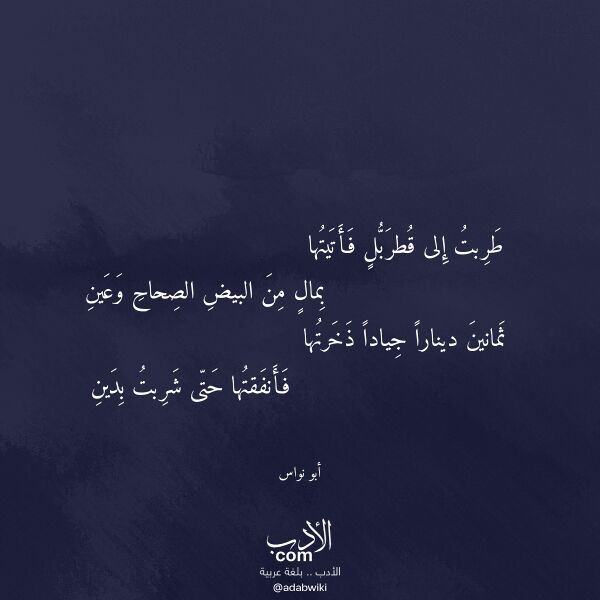 طَرِبتُ إِلى قُطرَبُّلٍ فَأَتَيتُها
بِمالٍ مِنَ البيضِ الصِحاحِ وَعَينِ
ثَمانينَ ديناراً جِياداً ذَخَرتُها
فَأَنفَقتُها حَتّى شَرِبتُ بِدَينِ
أبو نواس
الأدب
com
الأدب .. بلغة عربية
@adabwiki